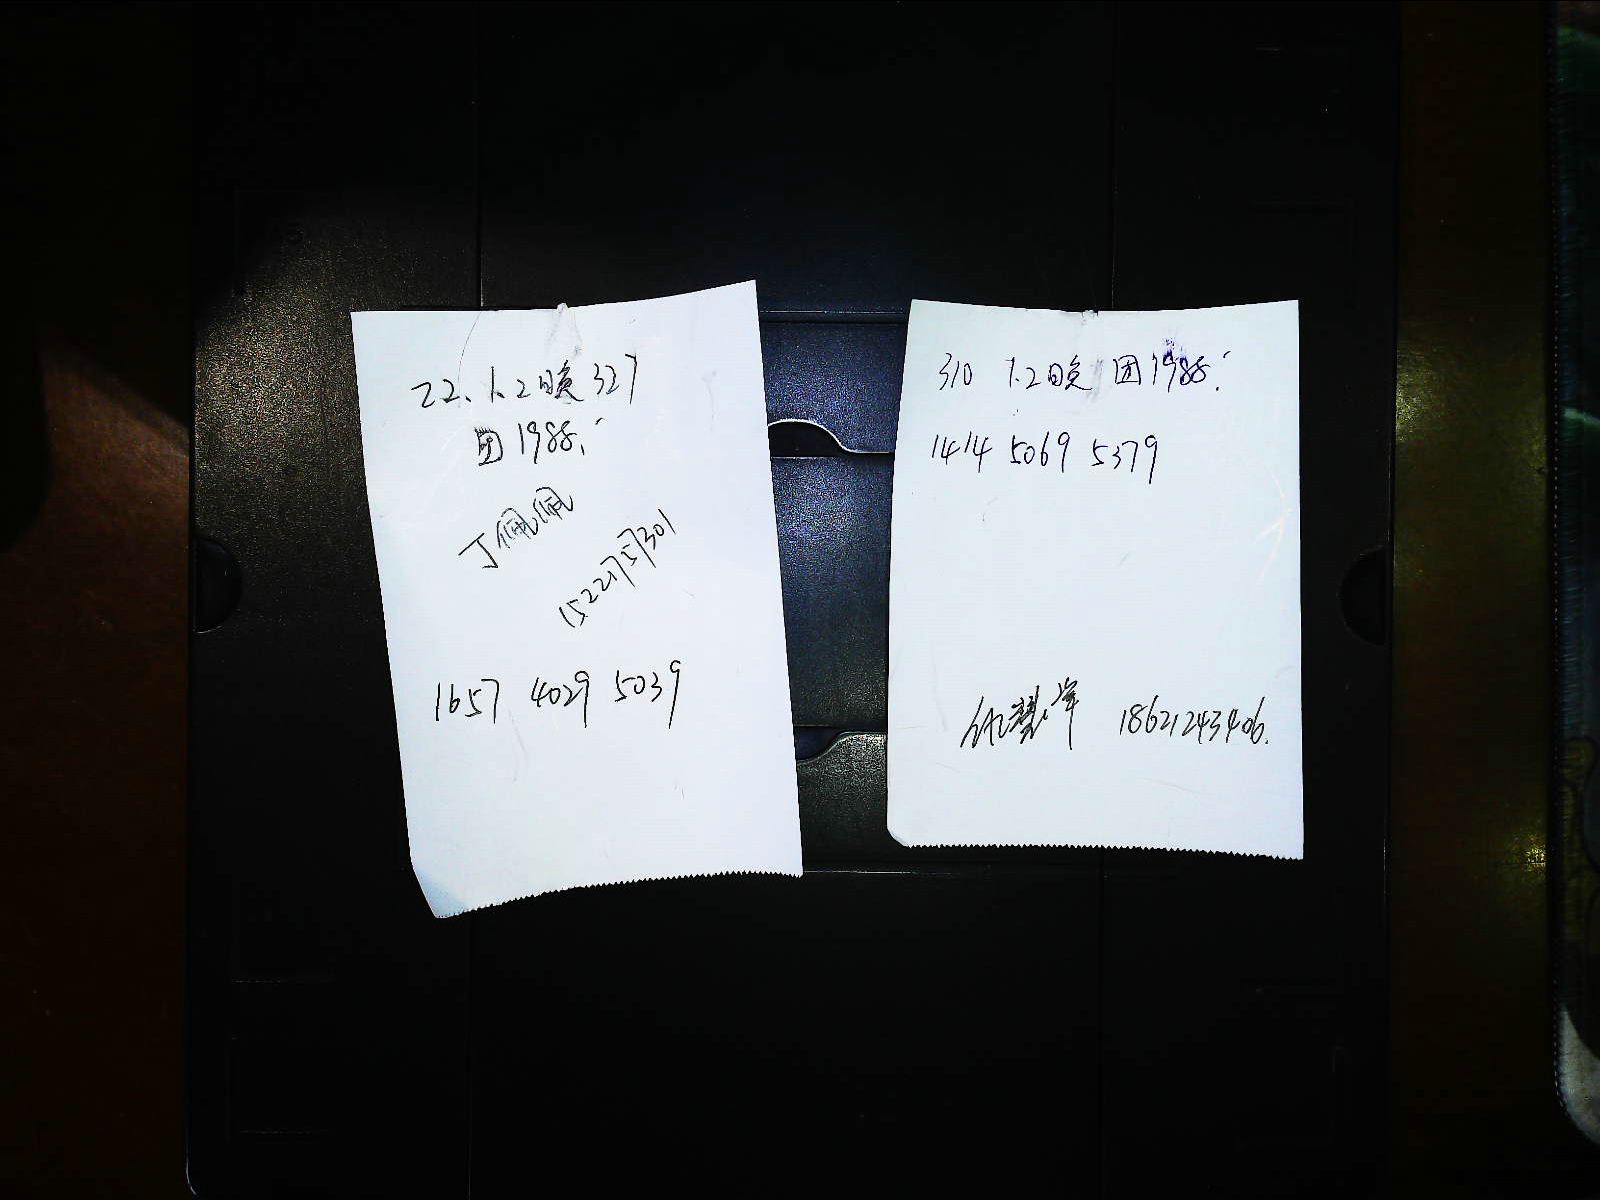 22.1.2晚327
团1988.
丁佩佩
15221757301
1657 4029 5039
310 1.2晚 团1988.
1414 5069 5379
18621243406.